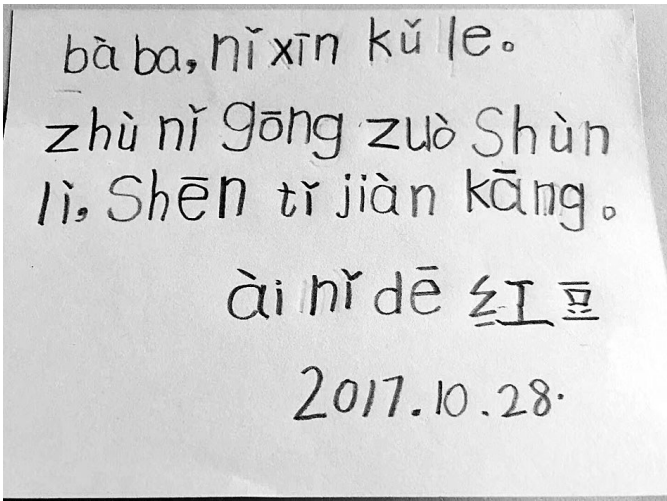 bà ba, nǐ xīn kǔ le。
zhù nǐ gōng zuò Shùn
lì, Shēn tǐ jiàn kāng。
ài nǐ dē 红豆
2017.10.28.